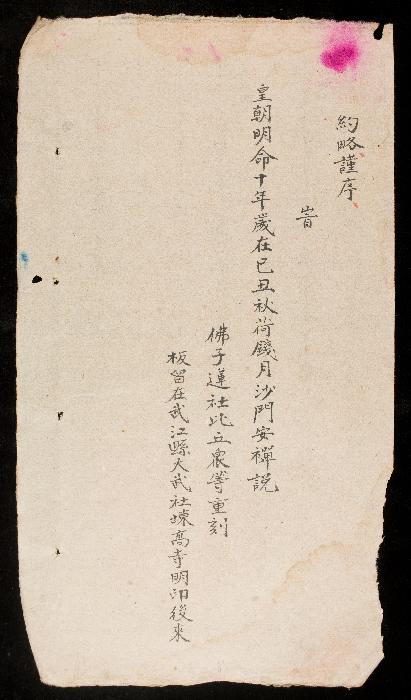 約略謹序
旹
皇朝明命十年歲在己丑秋荷錢月沙門安禪説
佛子蓮社比丘眾等重刻
板留在武江縣大武社㙡高寺明印後來